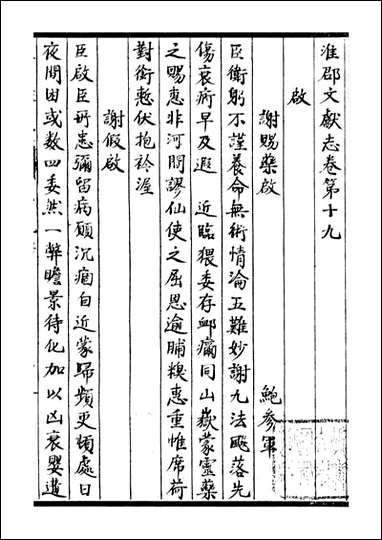 淮郡文獻志卷第十九
啟
謝賜藥啟 鮑參軍
臣衛躬不謹養命無術情淪五難妙謝九法飈落先
傷哀疴早及遐 近臨猥委存䘏痛同山嶽蒙靈藥
之賜惠非河間謬仙使之屈恩逾脯糗惠重帷席荷
對銜慙伏抱衿渥
謝假啟
臣啟臣所患彌留病願沉痼自近蒙歸頻更頓處日
夜間困或數四委然一弊瞻景待化加以凶衰嬰遘